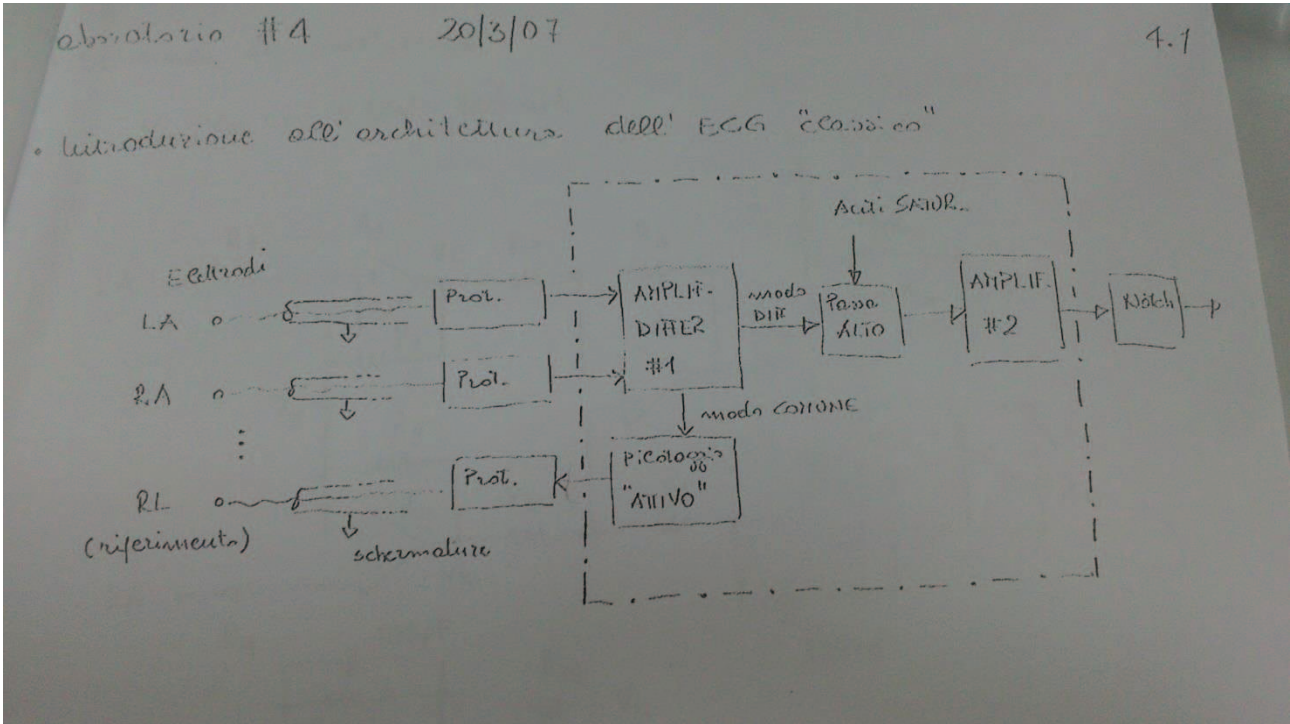 aboratorio #4 20/3/07 4.1
• Introduzione all'architettura dell'ECG "classico"
Elettrodi
LA
RA
RL
(riferimento)
schermature
Prot.
Prot.
Prot.
AMPLIF.
DIFFER
#1
modo
DIFF
modo COMUNE
"ATTIVO"
Anti SATUR.
Passa
ALTO
AMPLIF.
#2
Notch